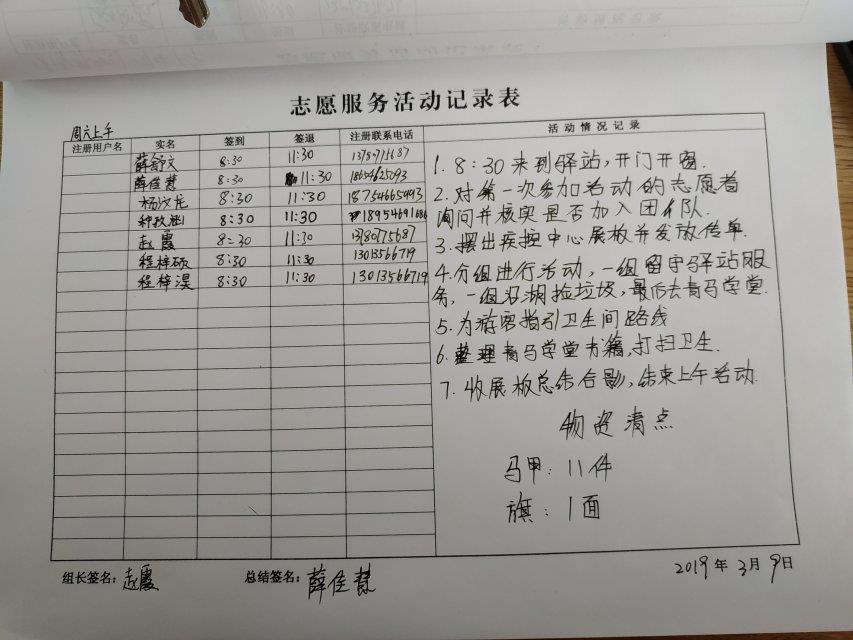 志愿服务活动记录表
周六上午
注册用户名 实名 签到 签退 注册联系电话 活动情况记录
薛舒文 8:30 11:30
薛佳慧 8:30 11:30 18654625093
杨汶龙 8:30 11:30 18754665493
8:30 11:30
赵霞 8:30 11:30 13780775687
程梓硕 8:30 11:30 13013566719
程梓淏 8:30 11:30 13013566719
1. 8:30来到驿站,开门开窗.
2. 对第一次参加活动的志愿者
询问并核实是否加入团体队.
3. 摆出疾控中心展板并发放传单.
4. 分组进行活动,一组留守驿站服
务,一组沿湖捡垃圾,最后去青马学堂.
5. 为游客指引卫生间路线
6. 整理青马学堂书籍,打扫卫生.
7. 收展板总结合影,结束上午活动.
物资清点
马甲: 11件
旗: 1面
组长签名:赵霞 总结签名:薛佳慧 2019年3月9日